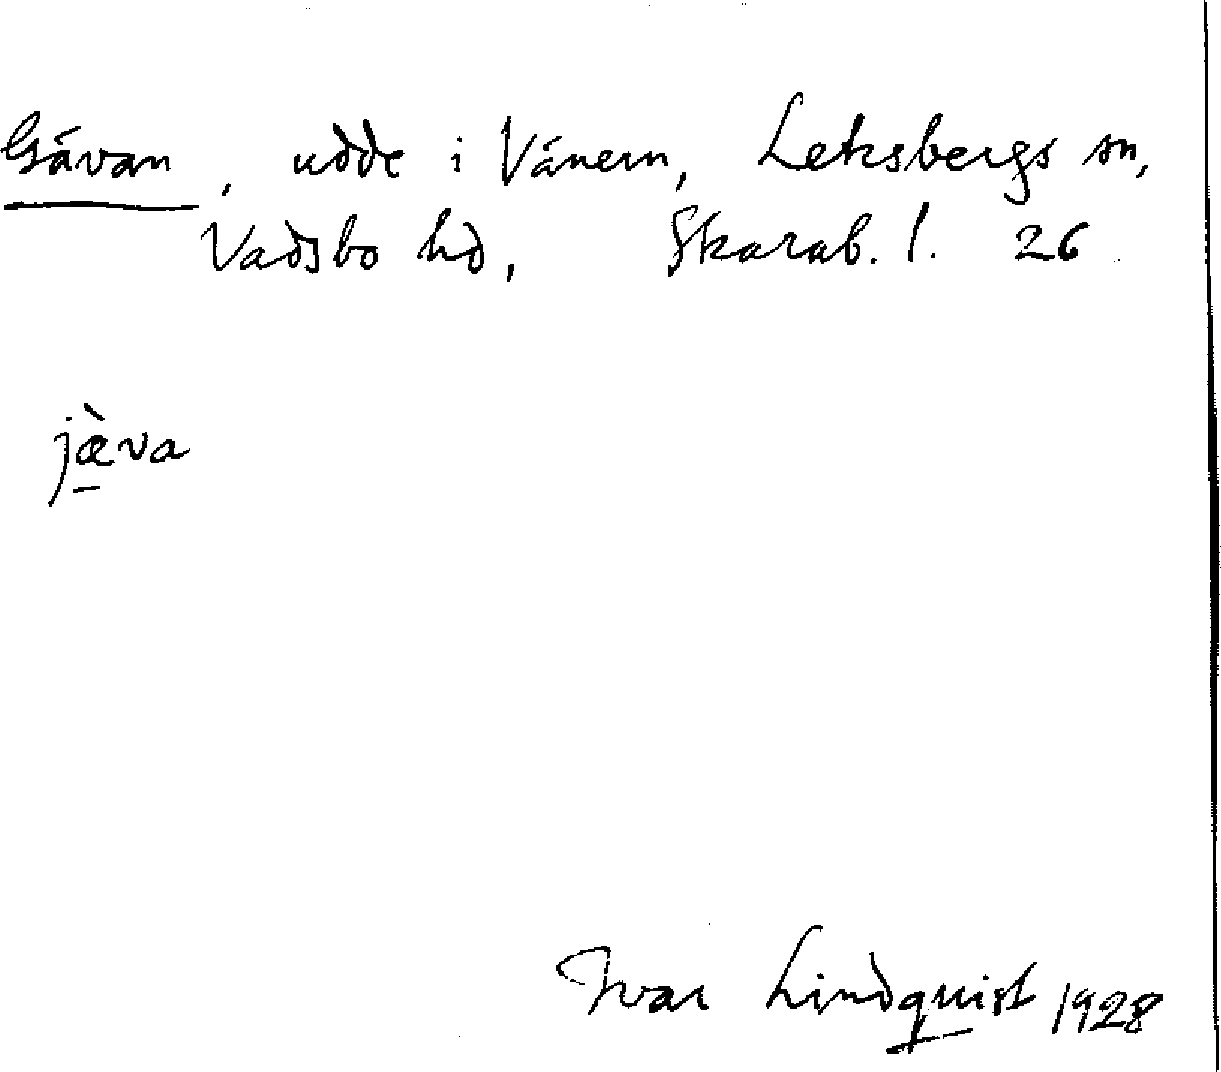 Gävan, udde i Vänern, Leksbergs sn,
Vadsbo hd, Skarab. l. 26
jæ̠̀va
Ivar Lindquist 1928